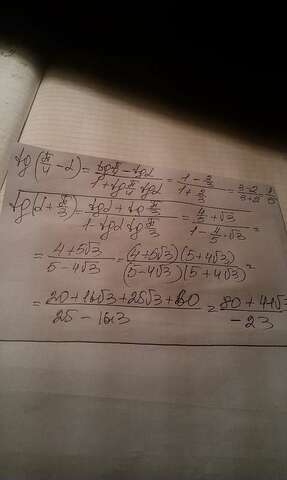 tg(π/4 - α) = (tg π/4 - tg α)/(1 + tg π/4 tg α) = (1 - 2/3)/(1 + 2/3) = (3-2)/(3+2) = 1/5
tg(α + π/3) = (tg α + tg π/3)/(1 - tg α tg π/3) = (4/5 + √3)/(1 - 4/5 · √3) =
= (4+5√3)/(5-4√3) = (4+5√3)(5+4√3)/(5-4√3)(5+4√3) =
= (20+16√3+25√3+60)/(25-16·3) = (80+41√3)/(-23)